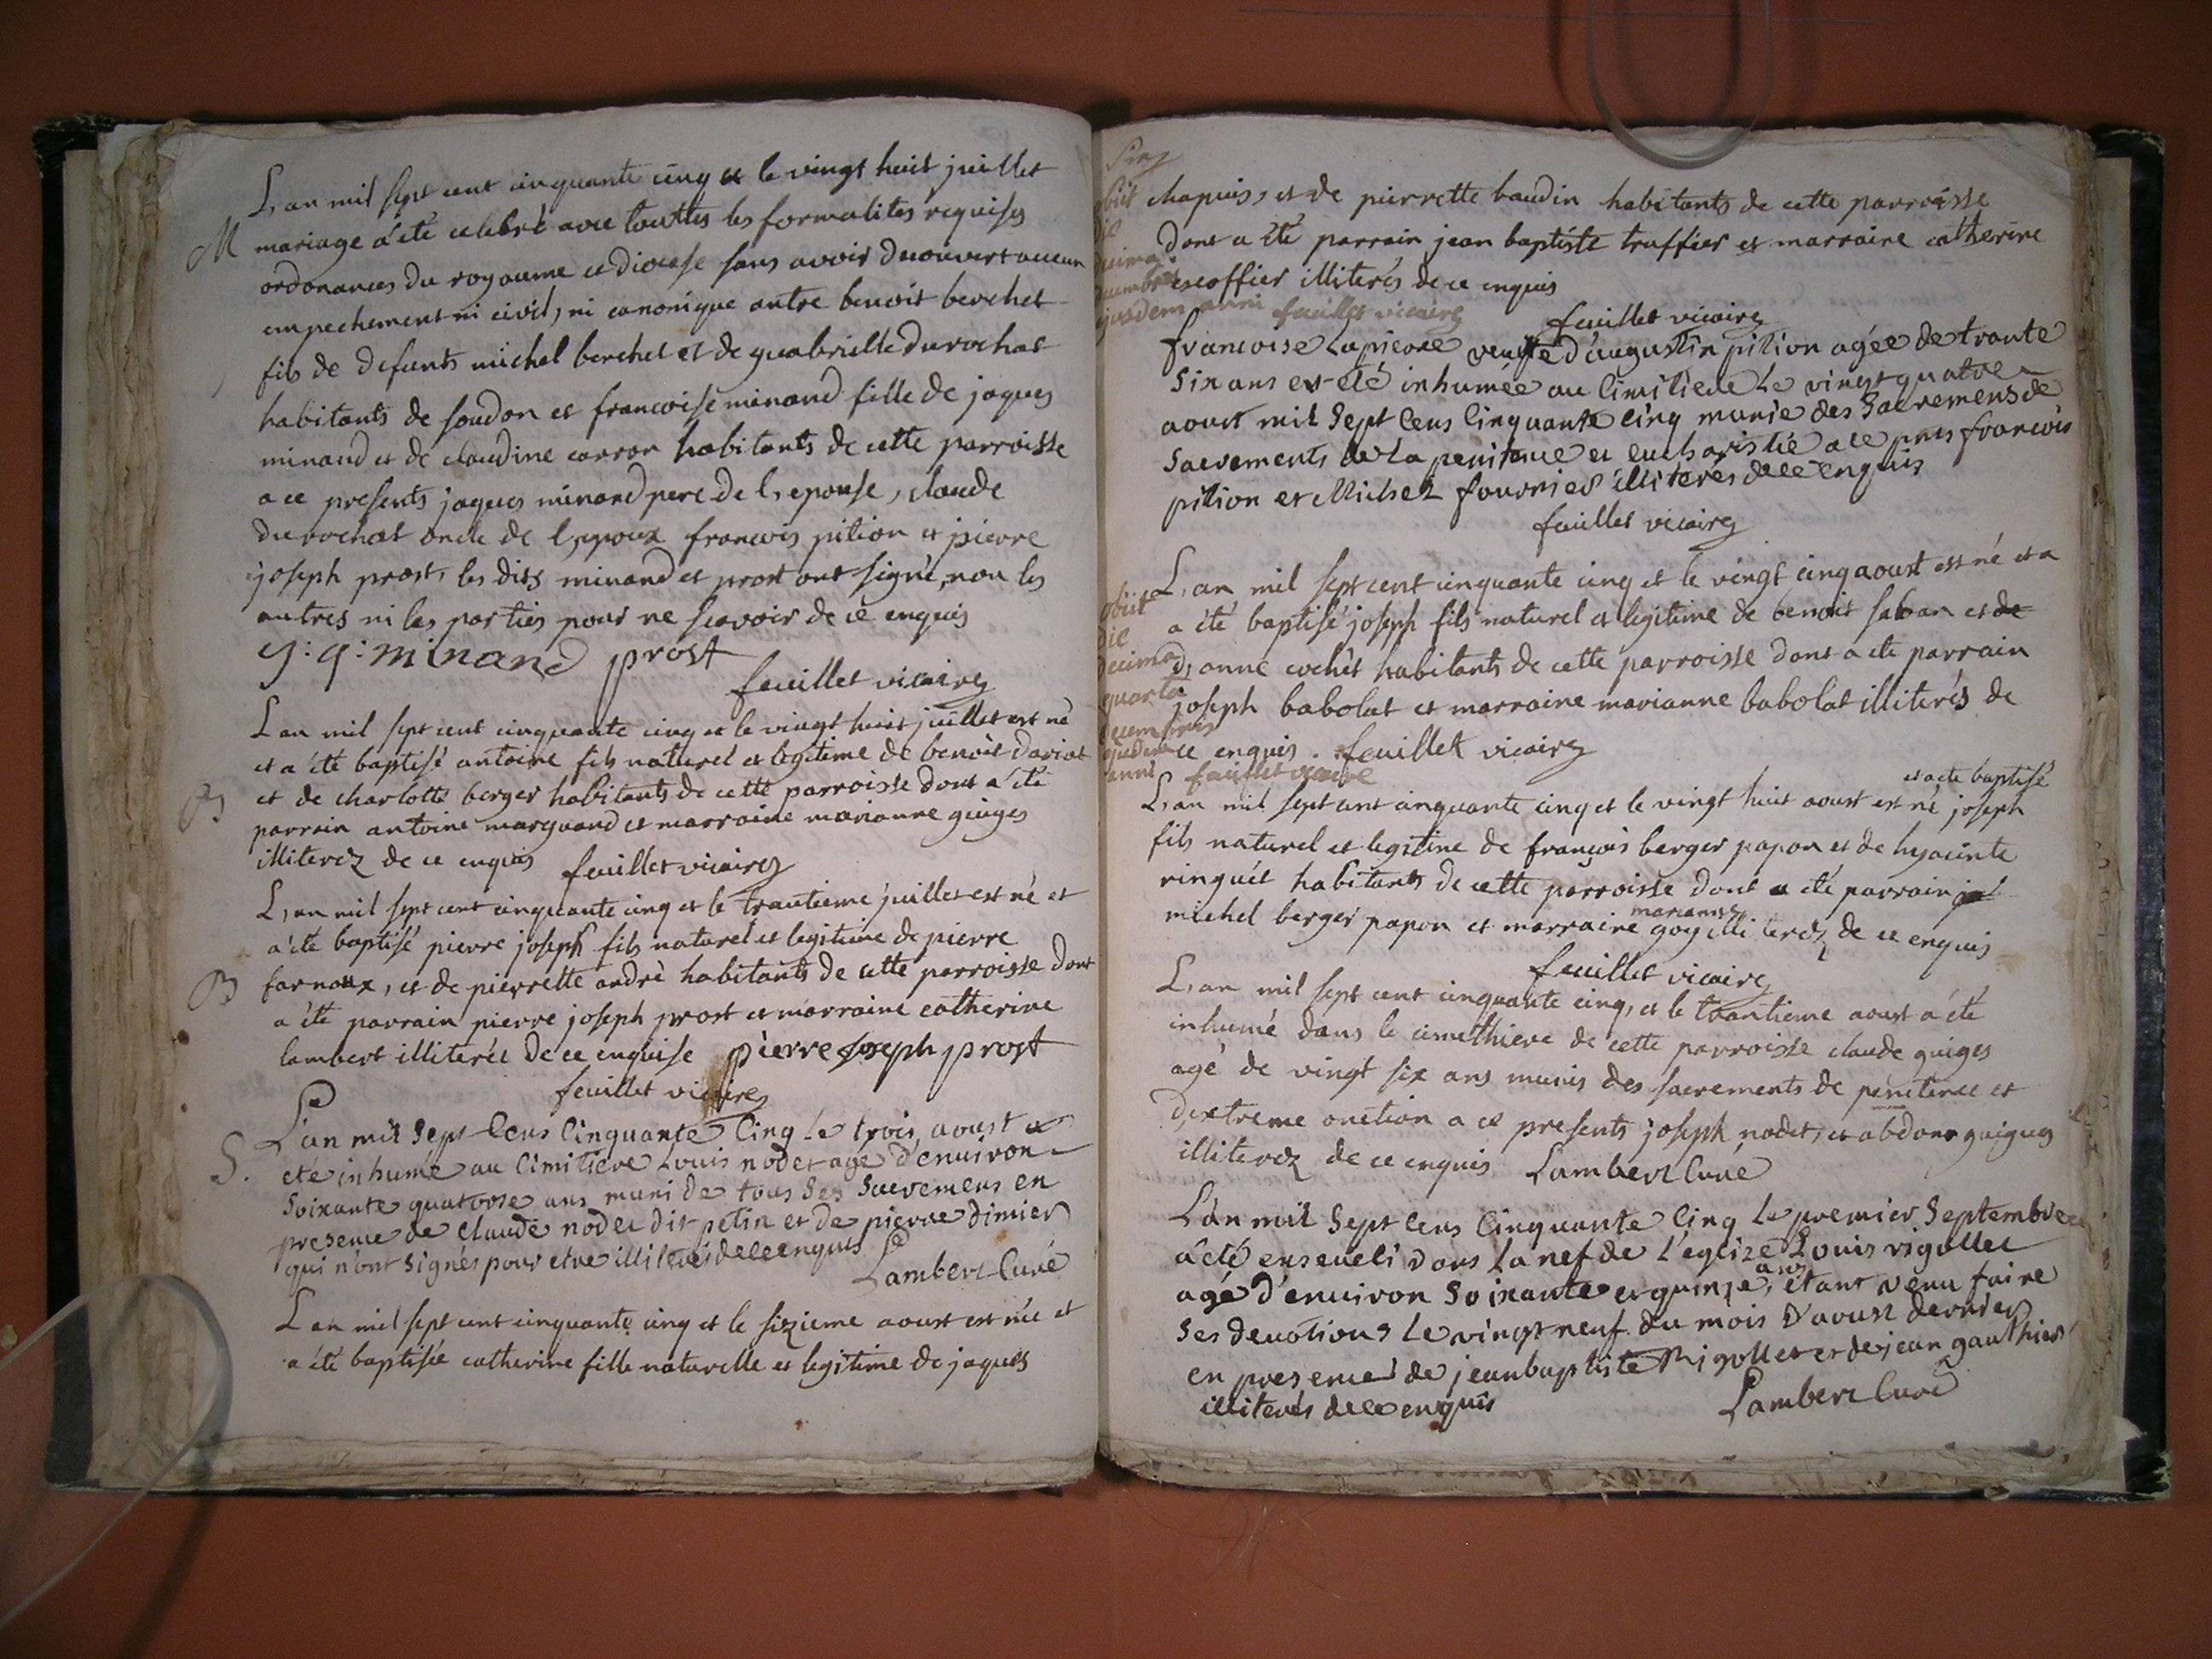 L'an mil sept cent cinquante cinq et le vingt huit juillet
M mariage a été celebré avec touttes les formalites requises
ordonances du royaume et diocese sans avoir decouvert aucun
empechement ni civil, ni canonique entre benoit berchet
fils de defunts michel berchet et de guabrielle durochat
habitants de soudon et francoise minand fille de jaques
minand et de claudine carron habitants de cette parroisse
a ce presents jaques minand pere de l'epouse, claude
durochat oncle de l'epoux francois pition et pierre
joseph prost, les dits minand et prost ont signé, non les
autres ni les parties pour ne scavoir de ce enquis
minand prost
feuillet vicaire
L'an mil sept cent cinquante cinq et le vingt huit juillet est né
et a été baptisé antoine fils naturel et legitime de benoit dariat
B et de charlotte berger habitants de cette parroisse dont a été
parrain antoine marquand et marraine marianne guiges
illiterez de ce enquis feuillet vicaire
L'an mil sept cent cinquante cinq et le trantieme juillet est né et
a été baptisé pierre joseph fils naturel et legitime de pierre
B farnoux, et de pierrette andré habitants de cette parroisse dont
a été parrain pierre joseph prost et marraine catherine
lambert illiterée de ce enquise pierre joseph prost
feuillet vicaire
L'an mil sept Cens Cinquante Cinq le trois aoust a
S. eté inhumé au Cimitiere Louis nodet agé d'environ
Soixante quatorse ans muni de tous Ses Sacremens en
presence de Claude nodet dit petin et de pierre dimier
qui n'ont Signés pour etre illiterés de ce enquis
Lambert Curé
L'an mil sept cent cinquante cinq et le sizieme aoust est née et
a été baptisée catherine fille naturelle et legitime de jaques
chapuis, et de pierrette baudin habitants de cette parroisse
dont a été parrain jean baptiste truffier et marraine catherine
escoffier illiterés de ce enquis
ejusdem anni feuillet vicaire
feuillet vicaire
francoise Lapierre veuve d'augustin pition agée de trante
Six ans est été inhumée au Cimitiere le vingt quatre
aoust mil Sept Cens Cinquante Cinq munie des Sacremens de
Sacrements de La penitence et eucharistie a ce pnts francois
pition et Michel fournier illiterés de ce enquis
feuillet vicaire
L'an mil sept cent cinquante cinq et le vingt cinq aoust est né et a
a été baptisé joseph fils naturel et legitime de benoit saban et de
d'anne cochet habitants de cette parroisse dont a été parrain
joseph babolat et marraine marianne babolat illiterés de
ce enquis. feuillet vicaire
obiit
die
decima
quarta
decembris
ejusdem
anni feuillet vicaire
et a été baptisé
L'an mil sept cent cinquante cinq et le vingt huit aoust est né joseph
fils naturel et legitime de françois berger papon et de hyacinte
ringuét habitants de cette parroisse dont a été parrain
marianne
michel berger papon et marraine goy illiterez de ce enquis
feuillet vicaire
L'an mil sept cent cinquante cinq, et le trantieme aoust a été
inhumé dans le cimethiere de cette parroisse claude guiges
agé de vingt six ans munis des sacrements de penitence et
d'extreme onction a ce presents joseph nodet, et abdon guigues
illiterez de ce enquis Lambert Curé
L'an mil Sept Cens Cinquante Cinq le premier Septembre
a été enseveli dans la nef de l'eglize Louis rigollet
ans
agé d'environ Soixante et quinze, etant venu faire
Ses devotions le vingt neuf du mois d'aoust dernier
en presence de jean baptiste Rigollet et de jean gauthier
illiterés de ce enquis
Lambert Curé